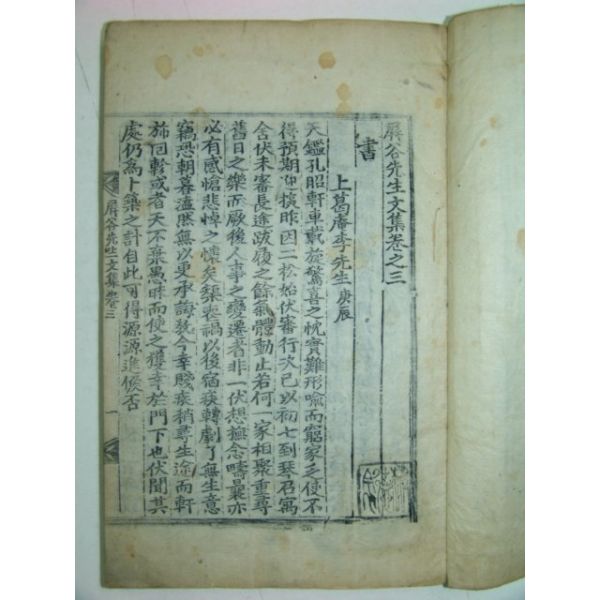 屛谷先生文集卷之三
書
上葛庵李先生 庚辰
天鑑孔昭軒車載旋驚喜之忱實難形喩而窮家乏使不
得預期迎候昨因二松始伏審行次已以初七到琴召寓
舍伏未審長途跋履之餘氣體動止若何一家相聚重尋
舊日之樂而厥後人事之變遷者非一伏想撫念疇曩亦
必有感愴悲悼之懷矣榘喪禍以後宿痰轉劇了無生意
竊恐朝暮溘然無以更承誨敎今幸賤疾稍尋生途而軒
旆回軫或者天不棄愚昧而使之獲幸於門下也伏聞其
處仍為卜築之計自此可得源源進候否
屛谷先生文集 卷三 一